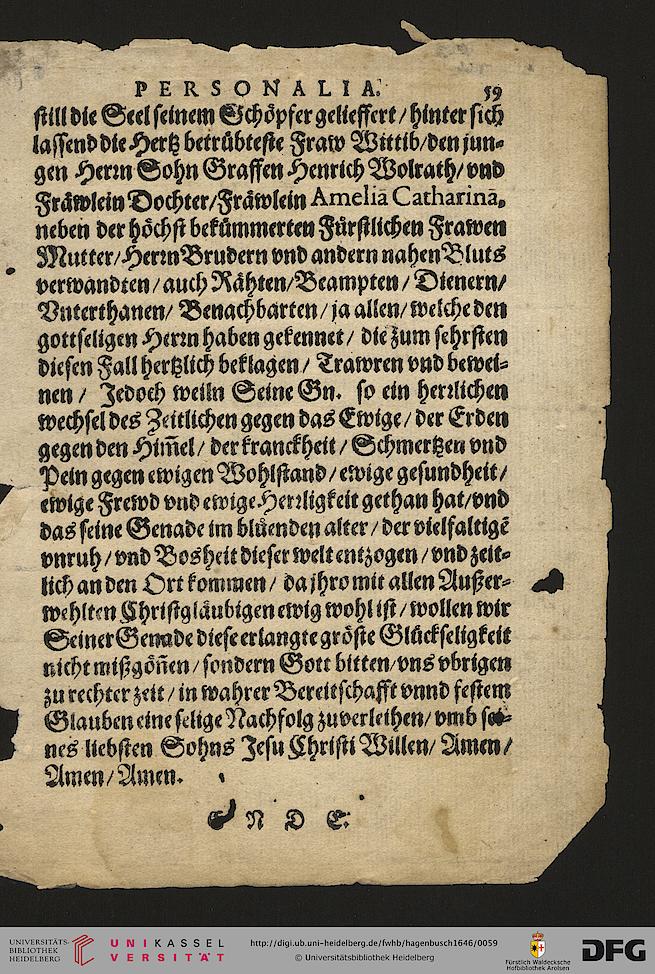 PERSONALIA. 59
still die Seel seinem Schöpfer gelieffert / hinter sich
lassend die Hertz betrübteste Fraw Wittib / den jun-
gen Herrn Sohn Graffen Henrich Wolrath / vnd
Fräwlein Dochter / Fräwlein Ameliā Catharinā,
neben der höchst bekümmerten Fürstlichen Frawen
Mutter / Herrn Brudern vnd andern nahen Bluts
verwandten / auch Rähten / Beampten / Dienern /
Vnterthanen / Benachbarten / ja allen / welche den
gottseligen Herrn haben gekennet / die zum sehrsten
diesen Fall hertzlich beklagen / Trawren vnd bewei-
nen / Jedoch weiln Seine Gn. so ein herrlichen
wechsel des Zeitlichen gegen das Ewige / der Erden
gegen den Him̄el / der kranckheit / Schmertzen vnd
Pein gegen ewigen Wohlstand / ewige gesundheit /
ewige Frewd vnd ewige Herrligkeit gethan hat / vnd
das seine Genade im blůenden alter / der vielfaltigē
vnruh / vnd Bosheit dieser welt entzogen / vnd zeit-
lich an den Ort kommen / da jhro mit allen Außer-
wehlten Christgläubigen ewig wohl ist / wollen wir
Seiner Genade diese erlangte gröste Glückseligkeit
nicht mißgön̄en / sondern Gott bitten / vns vbrigen
zu rechter zeit / in wahrer Bereitschafft vnnd festem
Glauben eine selige Nachfolg zuverleihen / vmb sei-
nes liebsten Sohns Jesu Christi Willen / Amen /
Amen / Amen.
E N D E.
UNIVERSITÄTS-
BIBLIOTHEK
HEIDELBERG
UNIKASSEL
VERSITÄT
http://digi.ub.uni-heidelberg.de/fwhb/hagenbusch1646/0059
© Universitätsbibliothek Heidelberg
Fürstlich Waldecksche
Hofbibliothek Arolsen
DFG